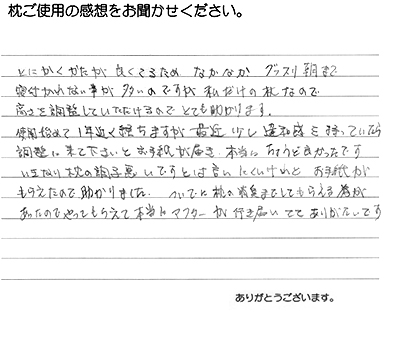 枕ご使用の感想をお聞かせください。
とにかくかたが良くてるため なかなか グッスリ朝まで
寝付かれない事が多いのですが 私だけの枕なので
高さを調整していただけるので とても助かります。
使用始めて1年近く経ちますが 最近 少し違和感を持っていたら
調整に来て下さいと お手紙が届き 本当に ちょうど良かったです
いきなり枕の調子悪いですとは言いにくいけれど お手紙が
もらえたので助かりました。 ついでに 枕の 消臭までしてもらえる
あったのでやってもらえて 本当に アフターが行き届いてて ありがたいです
ありがとうございます。